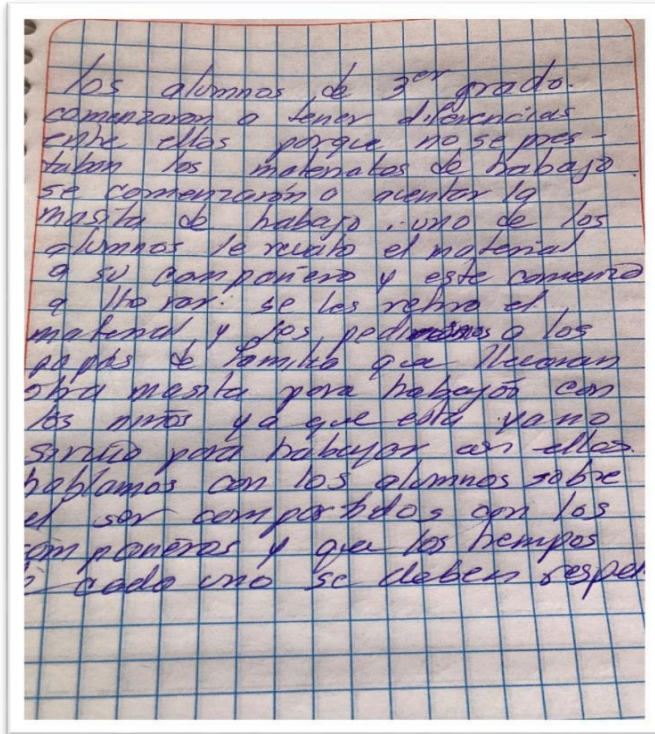 los alumnos de 3er grado.
comenzaron a tener diferencias
entre ellos porque no se pres-
taban los materiales de trabajo.
se comenzarón a aventar la
masita de trabajo. uno de los
alumnos le revato el material
a su compañero y este comenzó
a llorar. se les retiro el
material y les pedimos a los
papás de familia que llevaran
otra masita para trabajar con
los niños ya que esta ya no
sirvió para trabajar con ellos.
hablamos con los alumnos sobre
el ser compartidos con los
ompañeros y que los tiempos
cada uno se deben respe